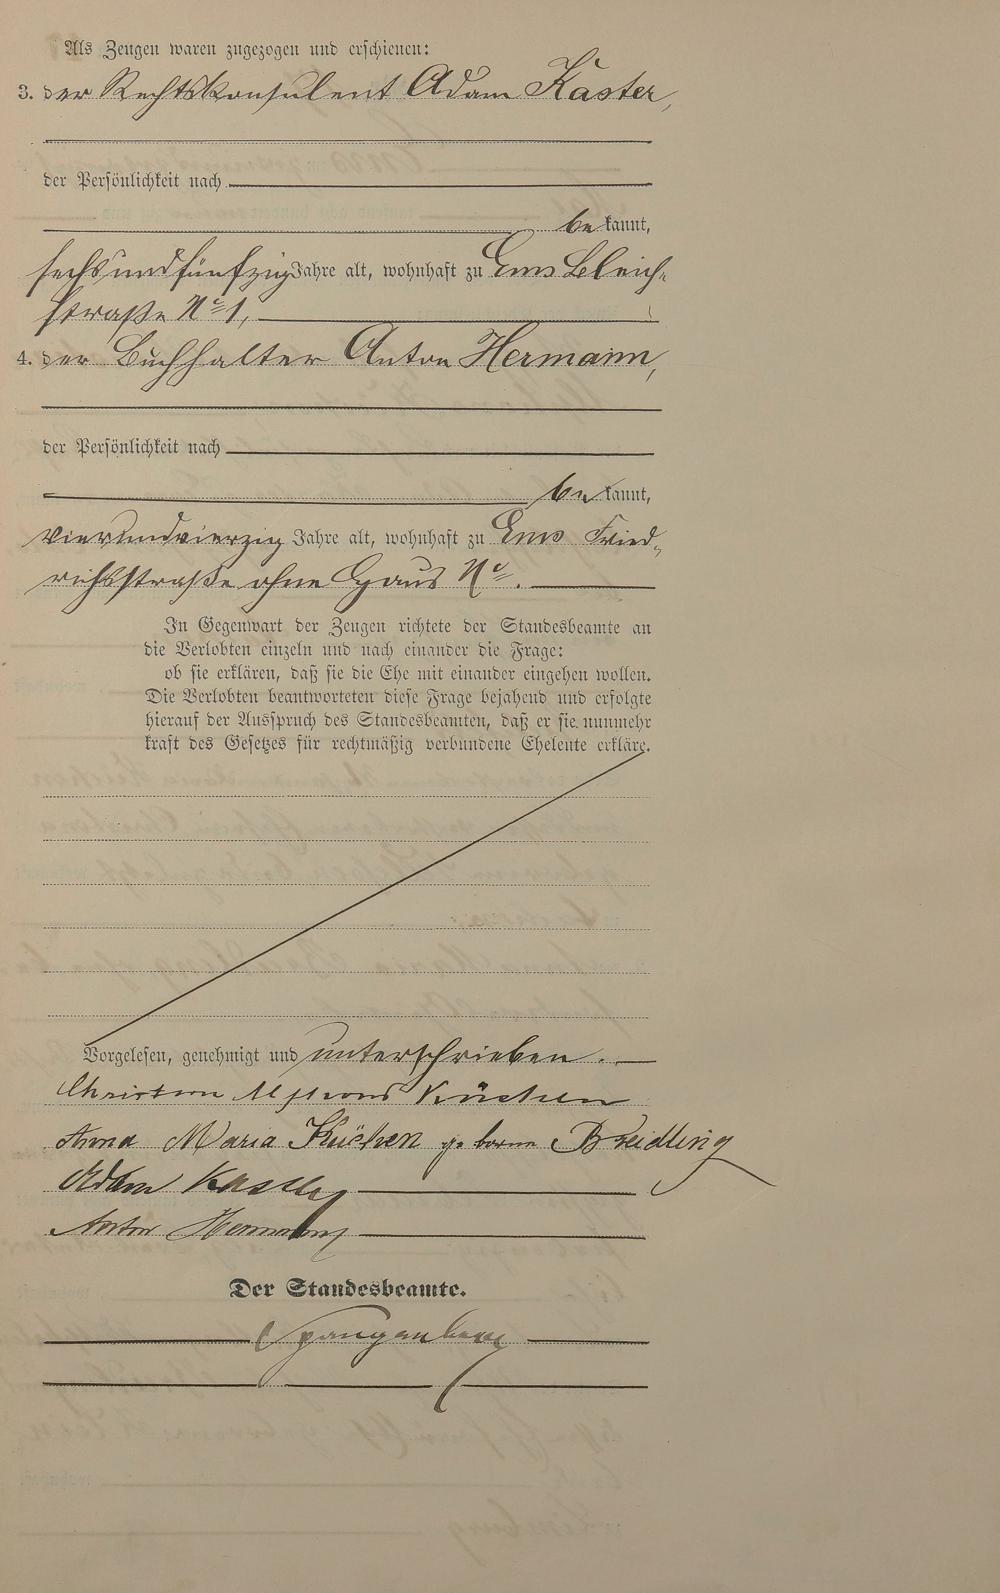 Als Zeugen waren zugezogen und erschienen:
3. der Rechtskonsulent Adam Kaster,
der Persönlichkeit nach
bekannt,
sechsundfünfzig Jahre alt, wohnhaft zu Ems Bleich-
straße No 1,
4. der Buchhalter Anton Hermann,
der Persönlichkeit nach
bekannt,
vierundvierzig Jahre alt, wohnhaft zu Ems Fried-
richsstraße ohne Haus No.
In Gegenwart der Zeugen richtete der Standesbeamte an
die Verlobten einzeln und nach einander die Frage:
ob sie erklären, daß sie die Ehe mit einander eingehen wollen.
Die Verlobten beantworteten diese Frage bejahend und erfolgte
hierauf der Ausspruch des Standesbeamten, daß er sie nunmehr
kraft des Gesetzes für rechtmäßig verbundene Eheleute erkläre.
Vorgelesen, genehmigt und unterschrieben.
Christian Küchen
Anna Maria Küchen geborene Breidling
Adam Kaster
Anton Hermann
Der Standesbeamte.
Spangenberg